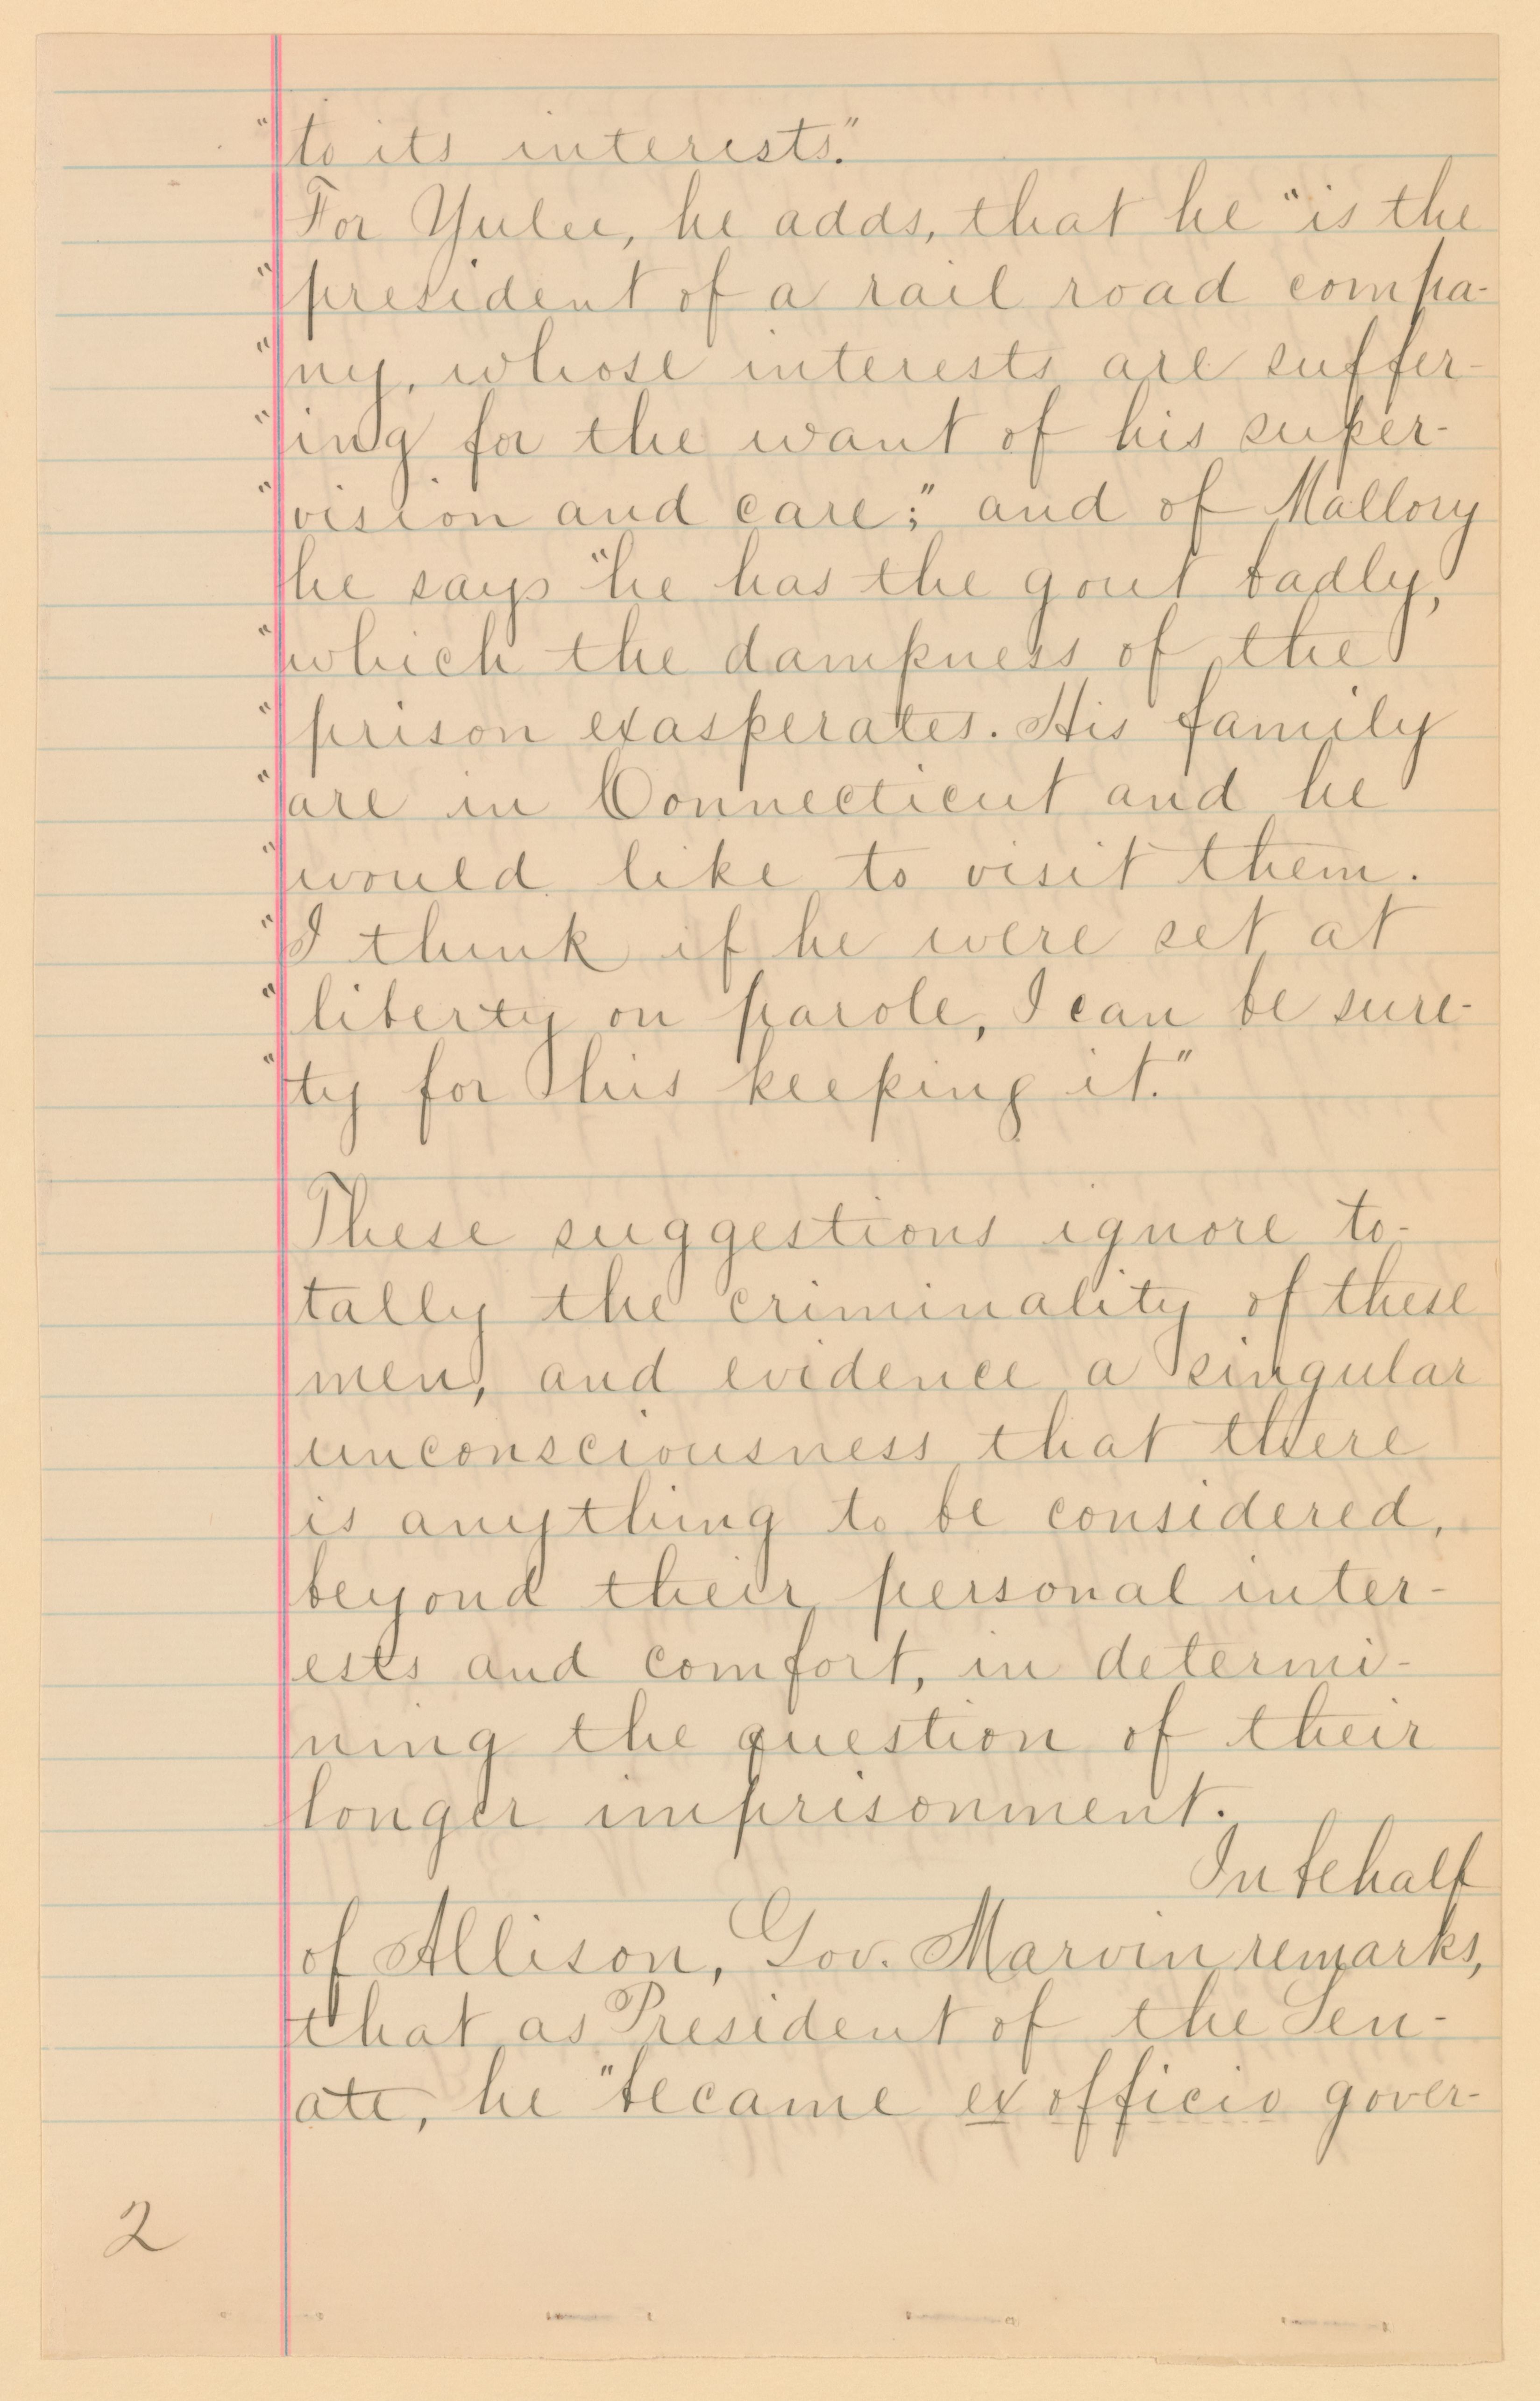 "to its interests."
For Yulee, he adds, that he "is the
"president of a rail road compa-
"ny, whose interests are suffer-
"ing for the want of his super-
"vision and care;" and of Mallory
he says "he has the gout badly,
"which the dampness of the
"prison exasperates. His family
"are in Connecticut and he
"would like to visit them.
"I think if he were set at
"liberty on parole, I can be sure-
"ty for his keeping it."
These suggestions ignore to-
tally the criminality of these
men, and evidence a singular
unconsciousness that there
is anything to be considered,
beyond their personal inter-
ests and comfort, in determi-
ning the question of their
longer imprisonment.
In behalf
of Allison, Gov. Marvin remarks,
that as President of the Sen-
ate, he "became ex officio gover-
2